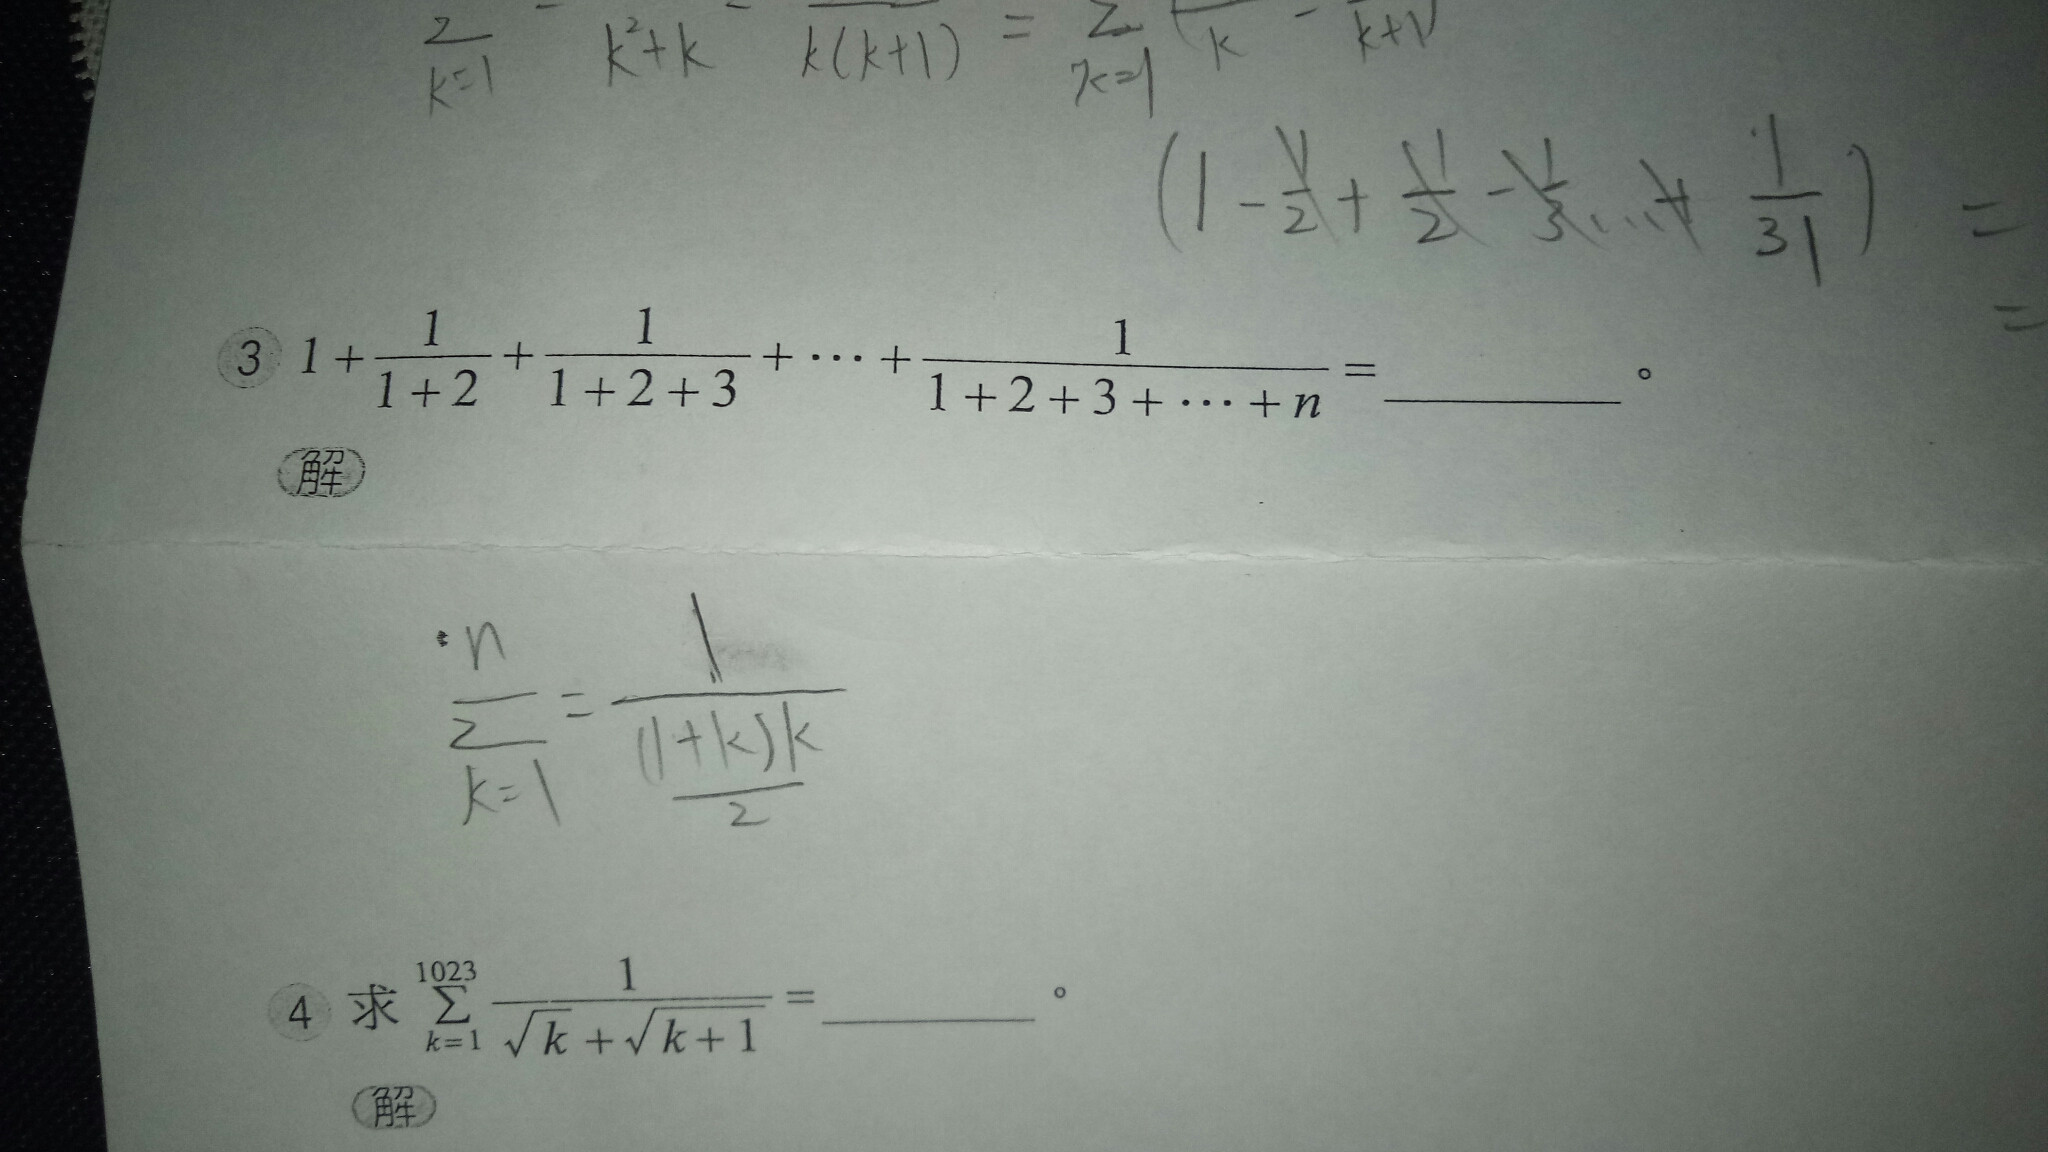 Σ k=1 k²+k k(k+1) = Σ k=1 ( k - k+1 )
(1 - 1/2 + 1/2 - 1/3 ... + 1/31) =
=
3 1 + 1/(1+2) + 1/(1+2+3) + ⋯ + 1/(1+2+3+⋯+n) = ________ 。
解
n Σ k=1 = 1/((1+k)k/2)
4 求 1023 Σ k=1 1/(√k + √(k+1)) = ________ 。
解